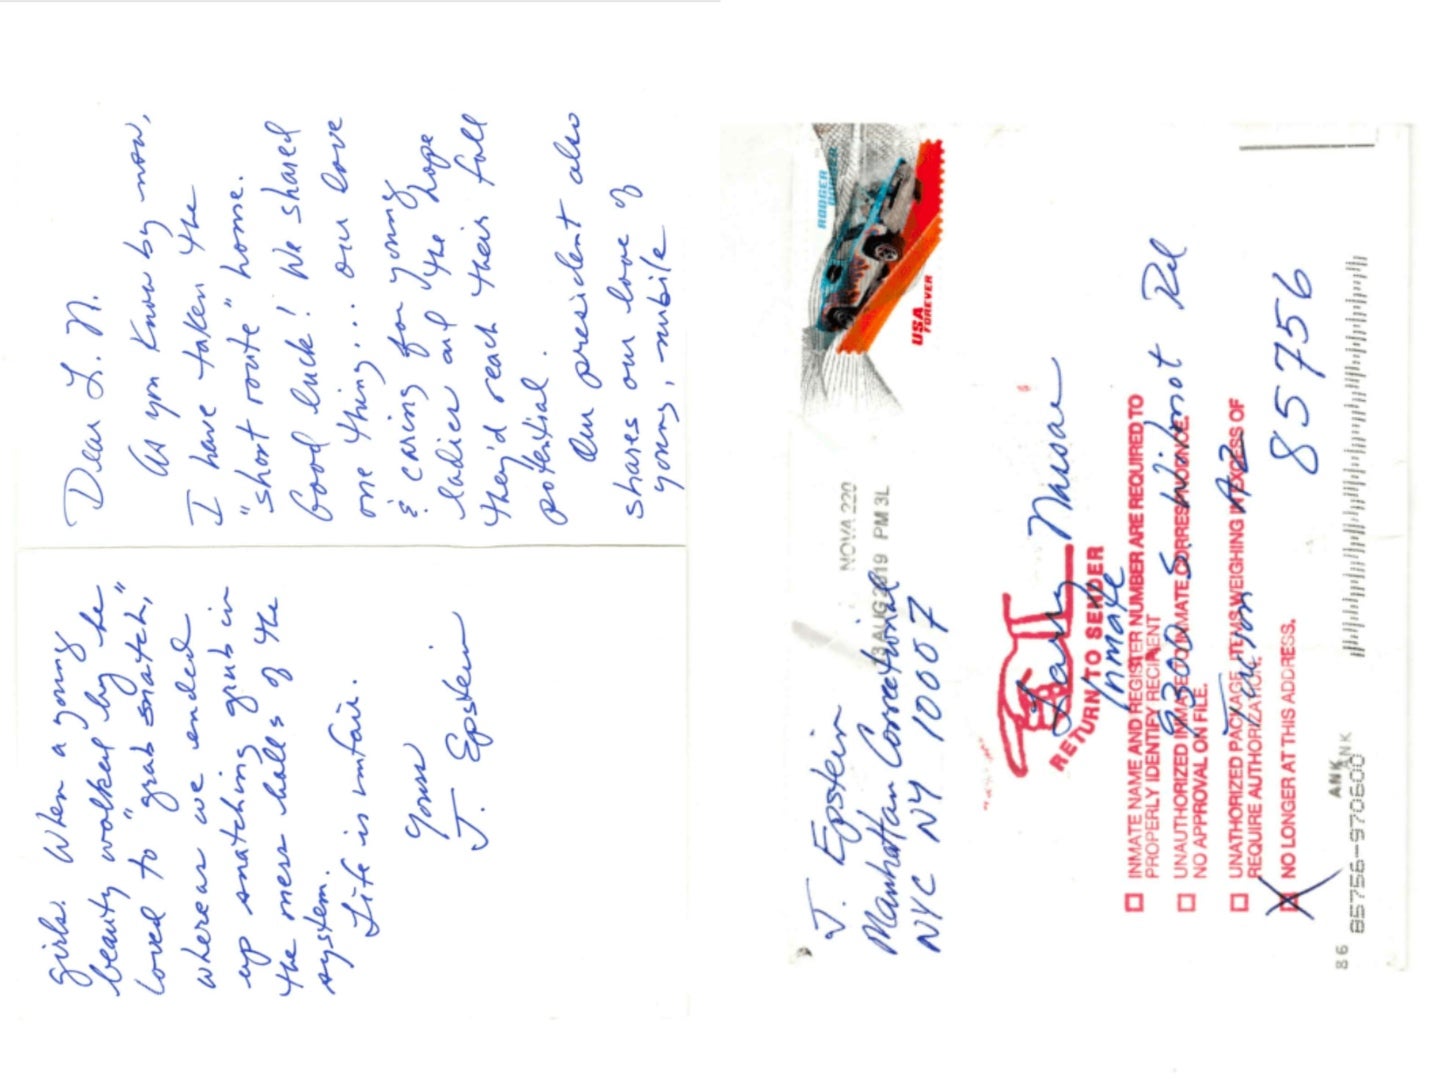 Dear L. N.
As you know by now,
I have taken the
"short route" home.
Good luck! We shared
one thing... our love
& caring for young
ladies and the hope
they'd reach their full
potential.
Our president also
shares our love of
young, nubile
girls. When a young
beauty walked by he
loved to "grab snatch,"
whereas we ended
up snatching grub in
the mess halls of the
system.
Life is unfair.
Yours
J. Epstein
J. Epstein
Manhattan Correctional
NYC NY 10007
NOVA 220
13 AUG 2019 PM 3L
USA
FOREVER
RETURN TO SENDER
Larry Nassar
Inmate
9300 S. Wilmot Rd
Tucson AZ
85756
INMATE NAME AND REGISTER NUMBER ARE REQUIRED TO
PROPERLY IDENTIFY RECIPIENT
UNAUTHORIZED INMATE TO INMATE CORRESPONDENCE.
NO APPROVAL ON FILE.
UNATHORIZED PACKAGE, ITEMS WEIGHING IN EXCESS OF
REQUIRE AUTHORIZATION.
X NO LONGER AT THIS ADDRESS.
ANK
86 85756-970600